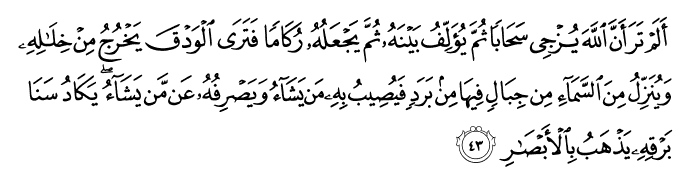 أَلَمۡ تَرَ أَنَّ ٱللَّهَ يُزۡجِي سَحَابٗا ثُمَّ يُؤَلِّفُ بَيۡنَهُۥ ثُمَّ يَجۡعَلُهُۥ رُكَامٗا فَتَرَى ٱلۡوَدۡقَ يَخۡرُجُ مِنۡ خِلَٰلِهِۦ
وَيُنَزِّلُ مِنَ ٱلسَّمَآءِ مِن جِبَالٖ فِيهَا مِنۢ بَرَدٖ فَيُصِيبُ بِهِۦ مَن يَشَآءُ وَيَصۡرِفُهُۥ عَن مَّن يَشَآءُۖ يَكَادُ سَنَا
بَرۡقِهِۦ يَذۡهَبُ بِٱلۡأَبۡصَٰرِ ٤٣